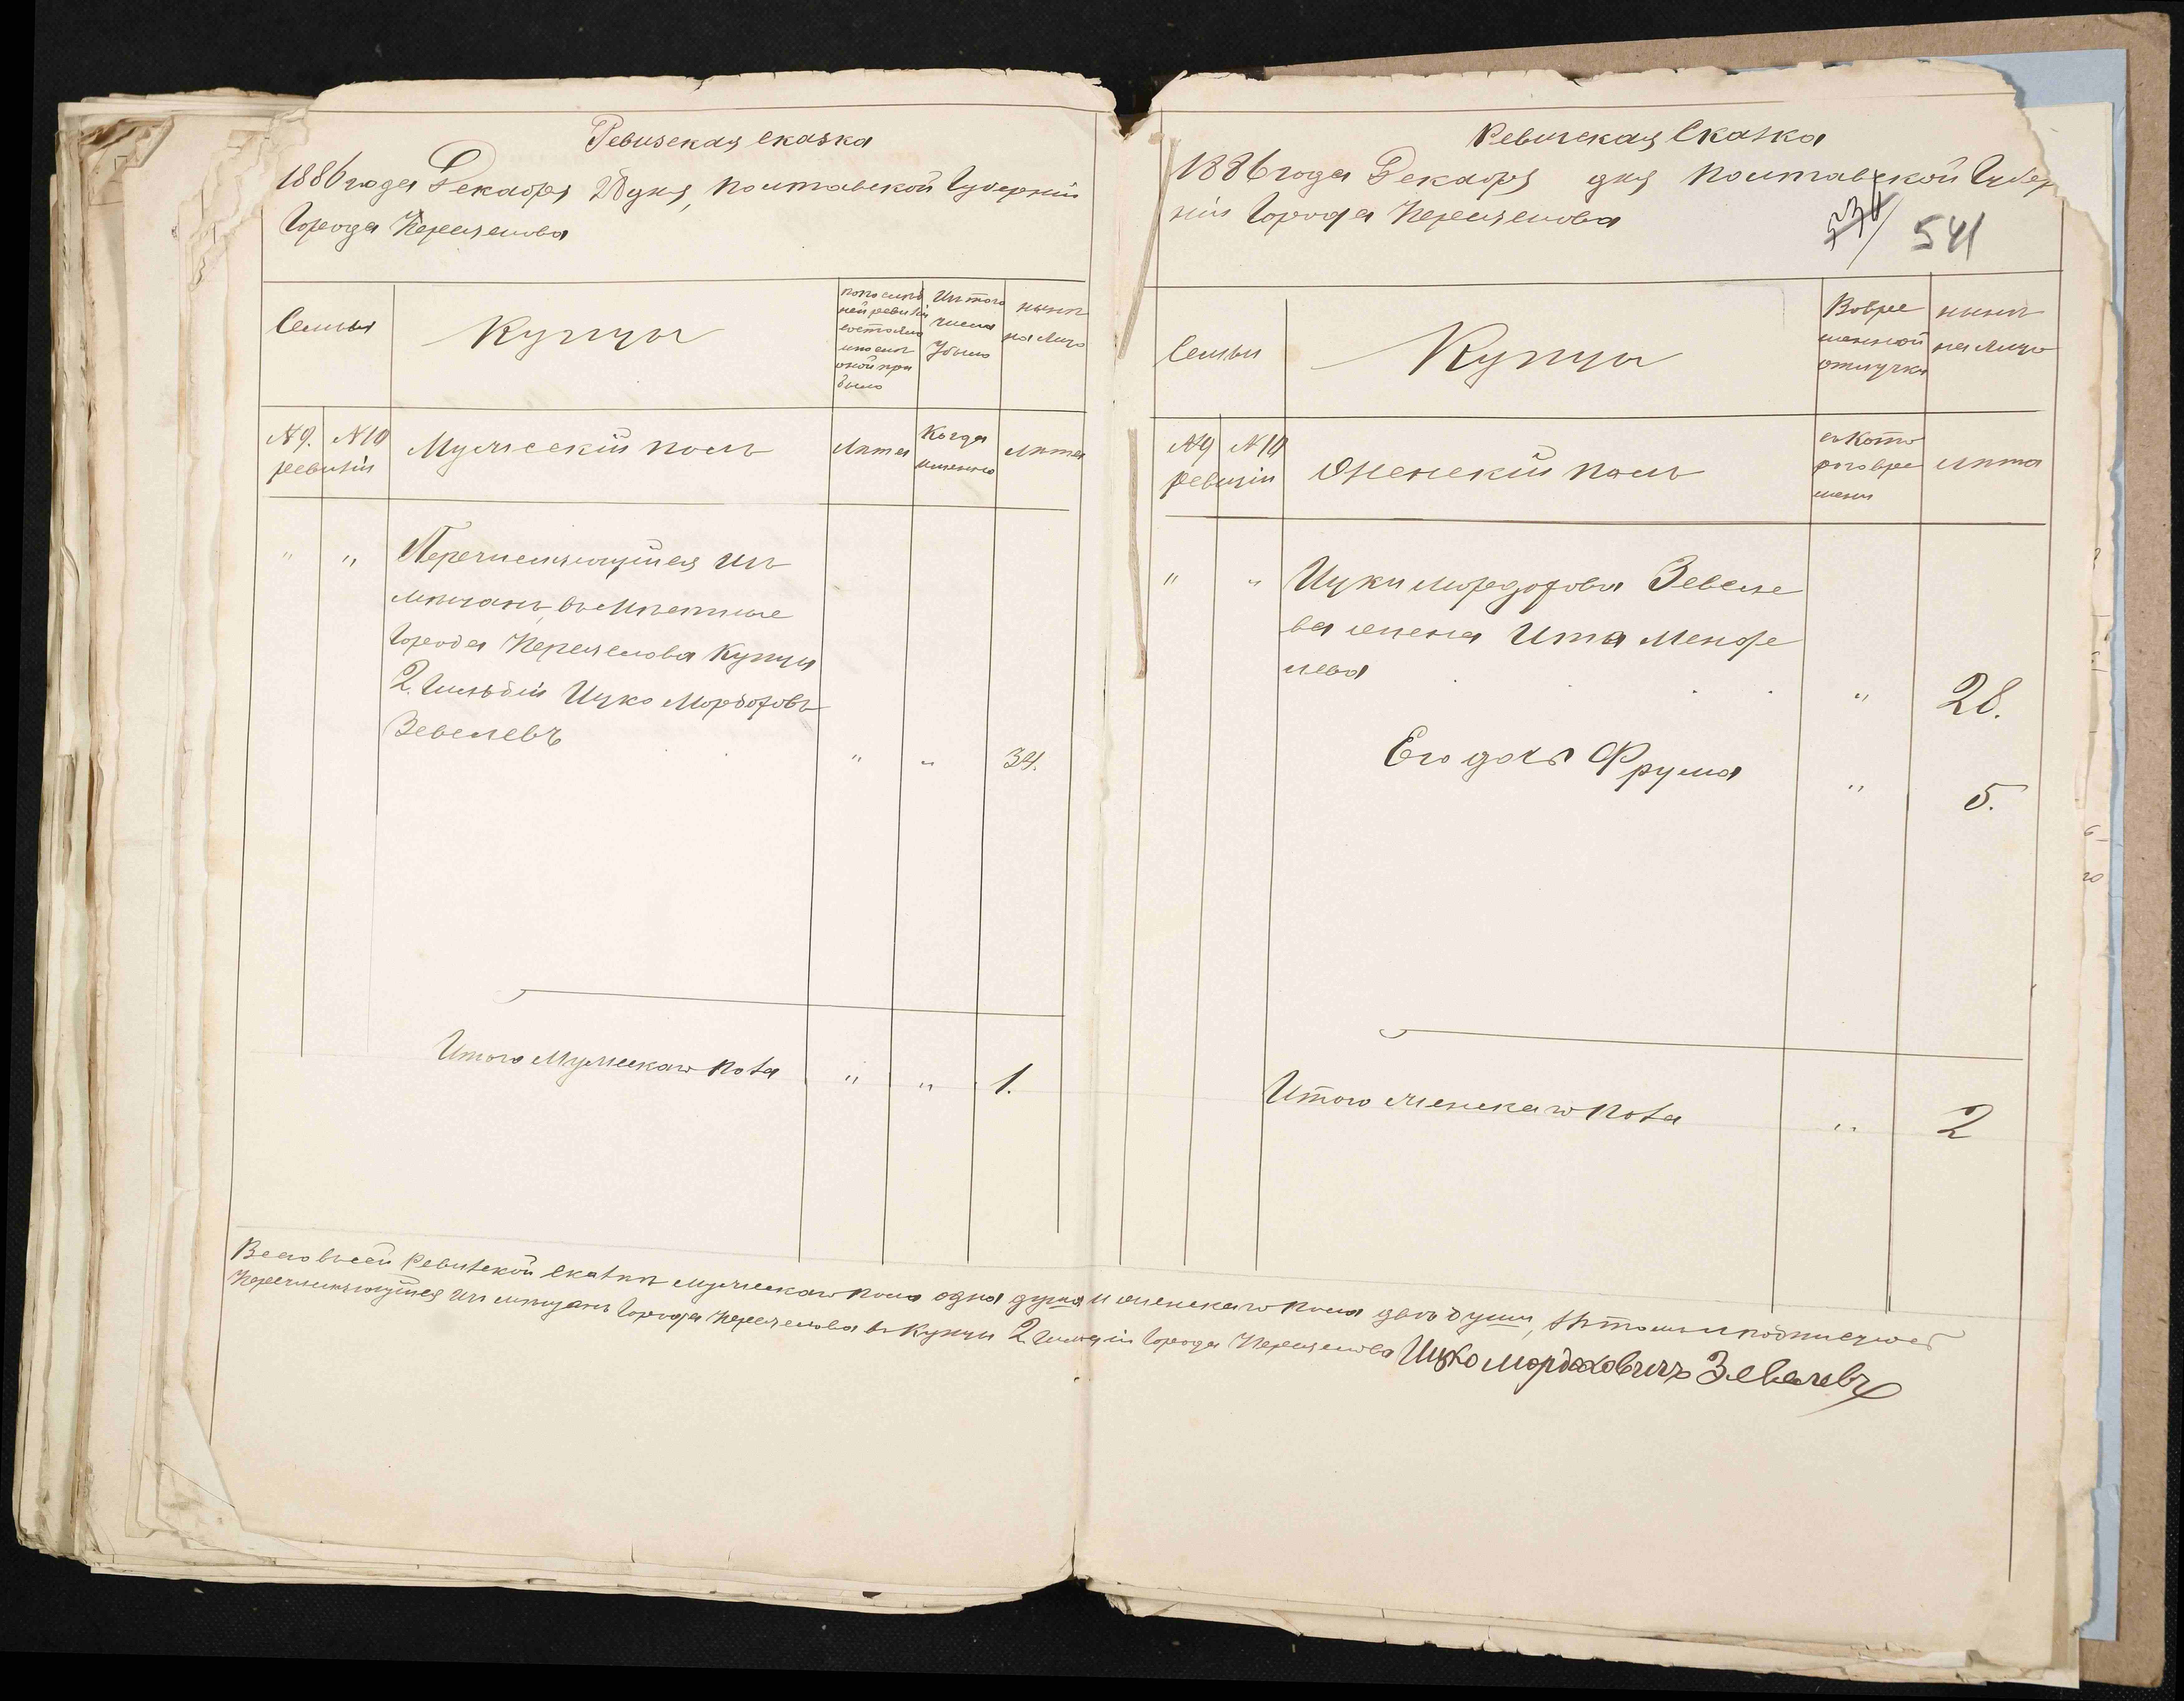 Ревизская сказка
1886 года Декабря 28 дня, Полтавской Губерніи
Города Переяслова
Семьи
Купцы
по послѣд
ней ревизіи
состояло
и послѣ
оной при
было
Изъ того
числа
Убыло
нынѣ
на лицо
№ 9. № 10
ревизіи
Мужескій полъ
Лѣта
Когда
именно
Лѣта
" " Перечисляющійся изъ
мѣщанъ, въ мѣстные
Города Переяслова Купцы
2. Гильдіи Ицко Мордуховъ
Зевелевъ " " 34.
Итого Мужескаго пола " " 1.
Ревизская Сказка
1886 года Декабря дня Полтавской Губер
ніи Города Переяслова
534 541
Семьи
Купцы
Во вре
менной
отлучкѣ
нынѣ
на лицо
№ 9 № 10
ревизіи
Женскій полъ
съ кото
раго вре
мени
Лѣта
" " Ицки Мордухова Зевеле
ва жена Ита Менде
лева " 28.
Его дочь Фрума " 5.
Итого женскаго пола " 2
Всего въ сей Ревизской сказкѣ мужескаго пола одна душа и женскаго пола двѣ души, въ томъ и подписуюсь
Перечисляющійся изъ мѣщанъ Города Переяслова въ Купцы 2 Гильдіи Города Переяслова Ицко Мордаховичъ Зевелевъ